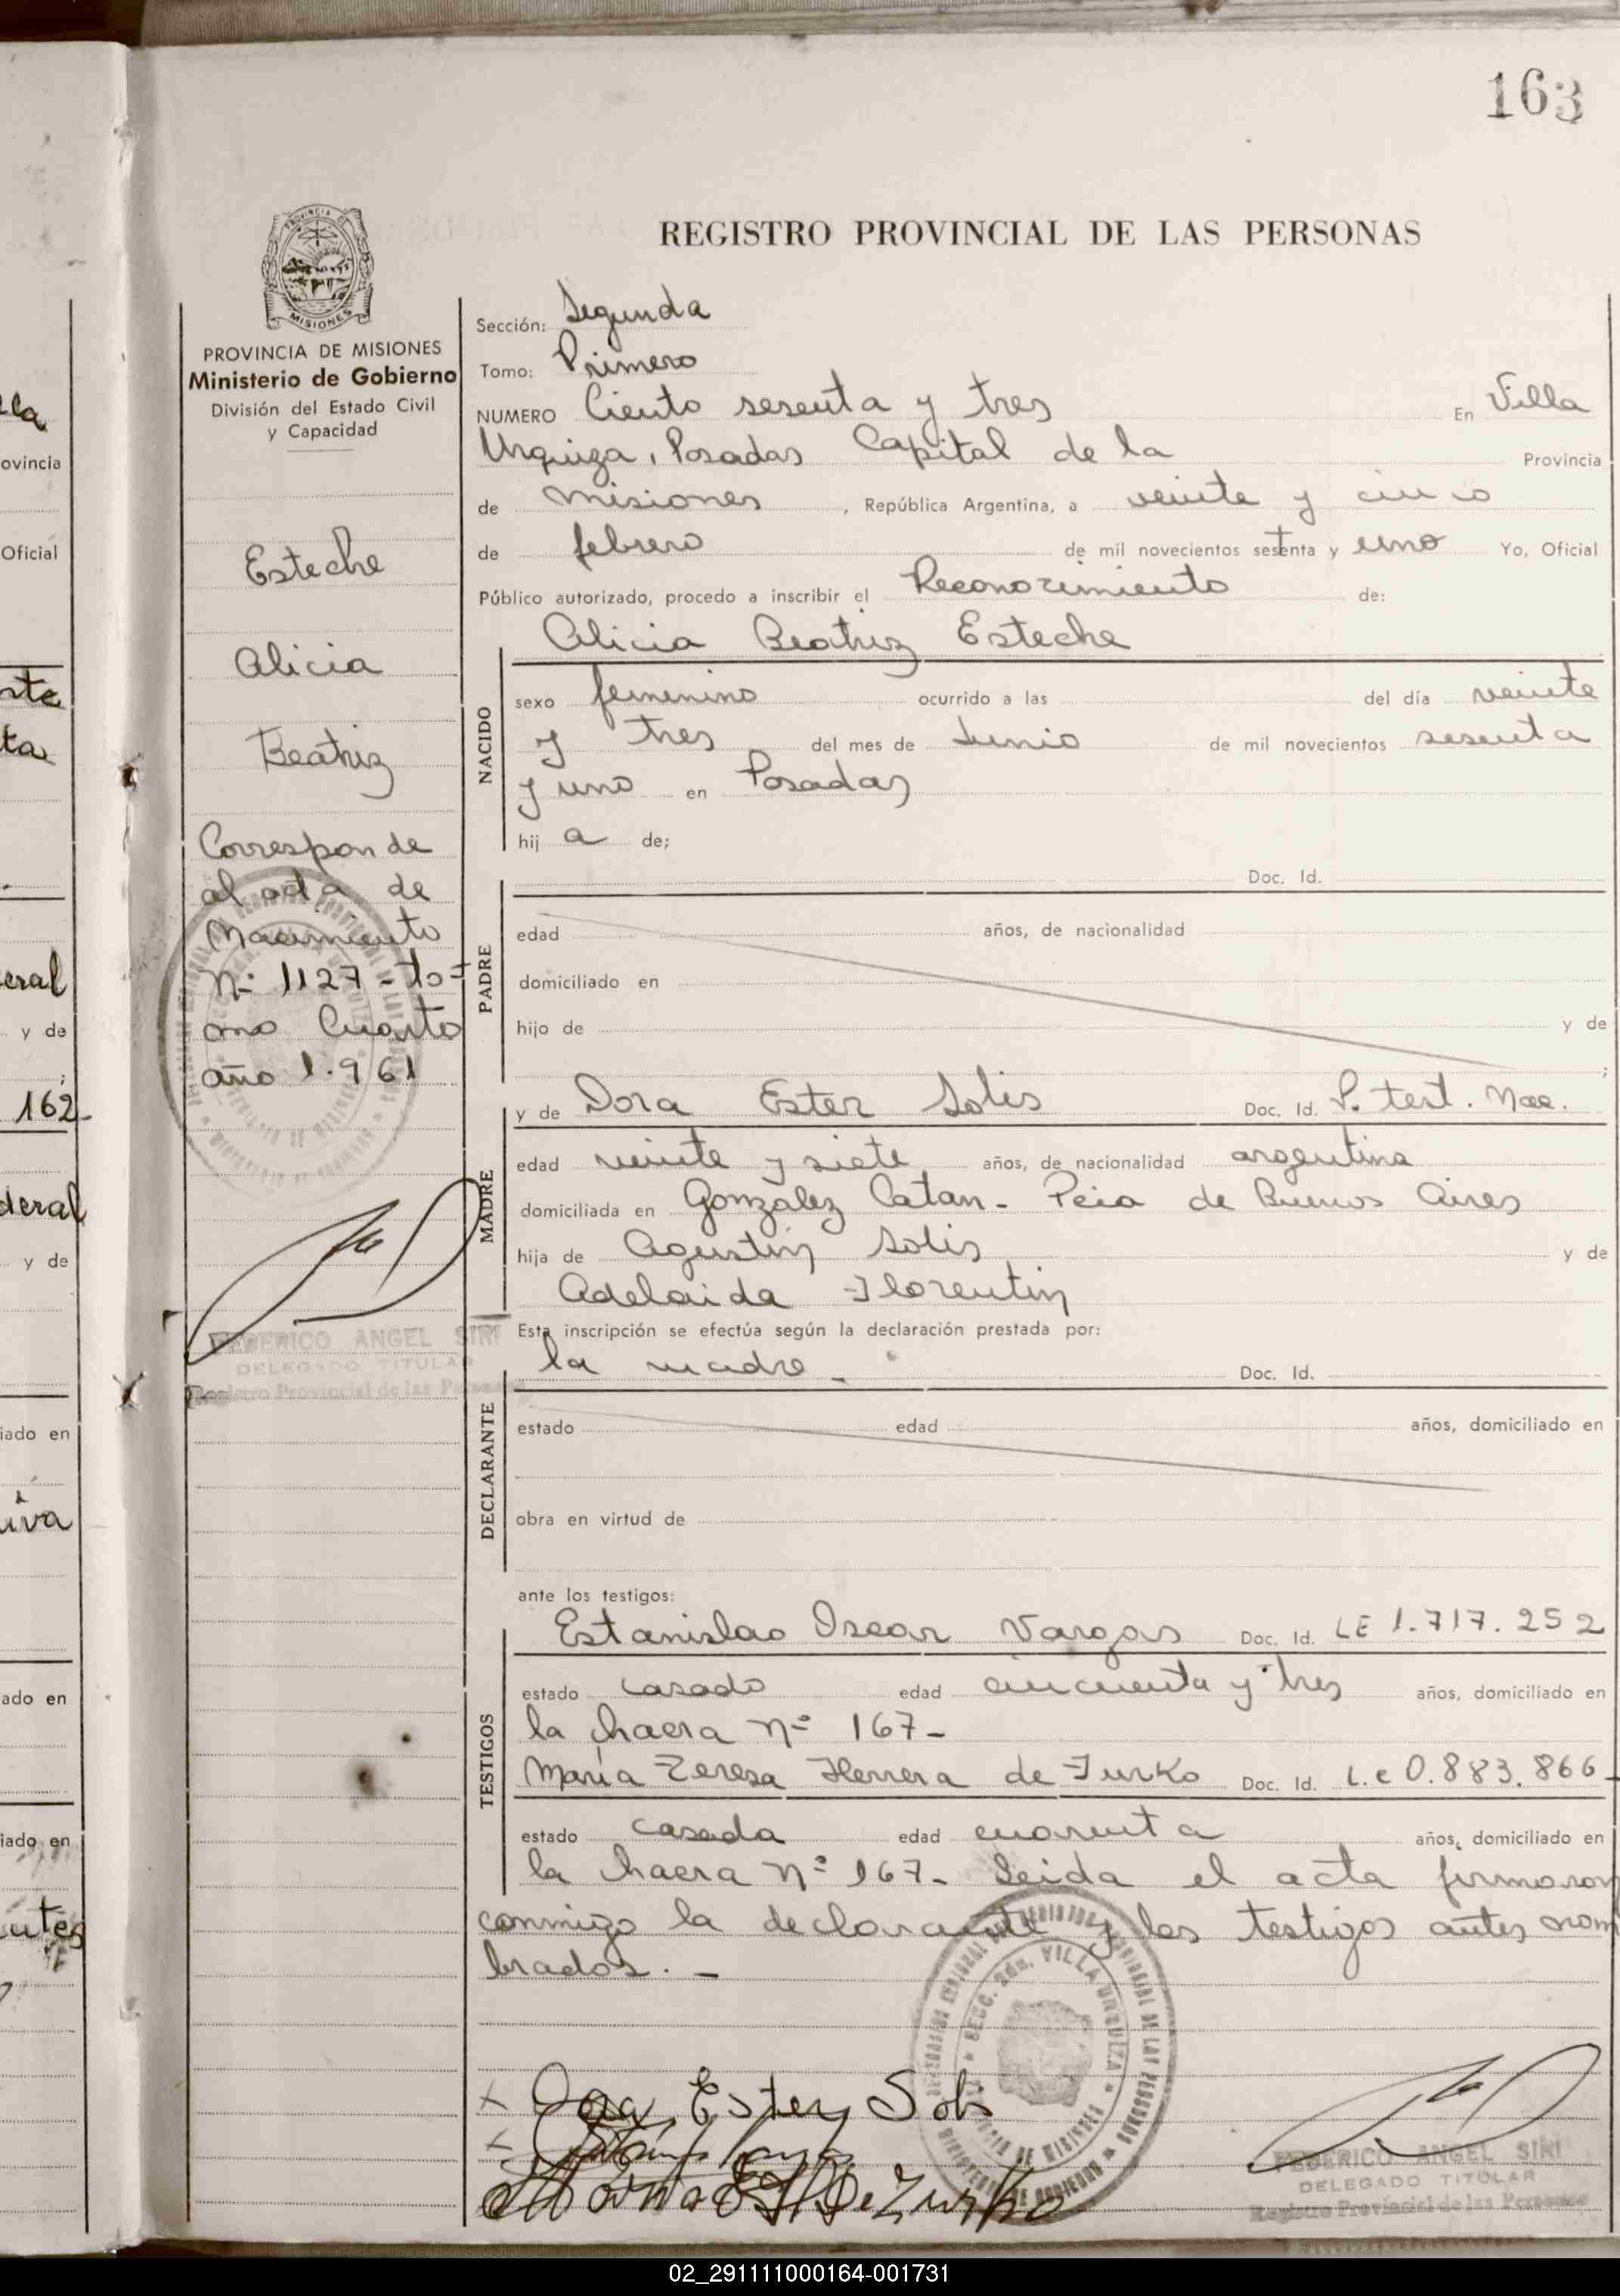 163
REGISTRO PROVINCIAL DE LAS PERSONAS
PROVINCIA DE MISIONES
Ministerio de Gobierno
División del Estado Civil
y Capacidad
Esteche
Alicia
Beatriz
Corresponde
al acta de
Nacimiento
Nº 1127 - to=
mo Cuarto
año 1.961
FEDERICO ANGEL SIRI
DELEGADO TITULAR
Registro Provincial de las Personas
Sección: Segunda
Tomo: Primero
NUMERO Ciento sesenta y tres En Villa
Urquiza, Posadas Capital de la Provincia
de Misiones, República Argentina, a veinte y cinco
de febrero de mil novecientos setenta y uno Yo, Oficial
Público autorizado, procedo a inscribir el Reconocimiento de:
Alicia Beatriz Esteche
NACIDO
sexo femenino ocurrido a las del día veinte
y tres del mes de Junio de mil novecientos sesenta
y uno en Posadas
hij a de;
Doc. Id.
PADRE
edad años, de nacionalidad
domiciliado en
hijo de y de
;
y de Dora Ester Solis Doc. Id. P. test. Nac.
MADRE
edad veinte y siete años, de nacionalidad argentina
domiciliada en Gonzalez Catan - Pcia de Buenos Aires
hija de Agustin Solis y de
Adelaida Florentin
Esta inscripción se efectúa según la declaración prestada por:
la madre - Doc. Id.
DECLARANTE
estado edad años, domiciliado en
obra en virtud de
ante los testigos:
Estanislao Oscar Vargas Doc. Id. LE 1.717.252
TESTIGOS
estado casado edad cincuenta y tres años, domiciliado en
la chacra Nº 167-
María Teresa Herrera de Zurko Doc. Id. L.c 0.883.866-
estado casada edad cuarenta años, domiciliado en
la chacra Nº 167- Leida el acta firmaron
conmigo la declarante y los testigos antes nom
brados. -
SECC. 2da. VILLA URQUIZA
x Dora Ester Solis
FEDERICO ANGEL SIRI
DELEGADO TITULAR
Registro Provincial de las Personas
02_291111000164-001731